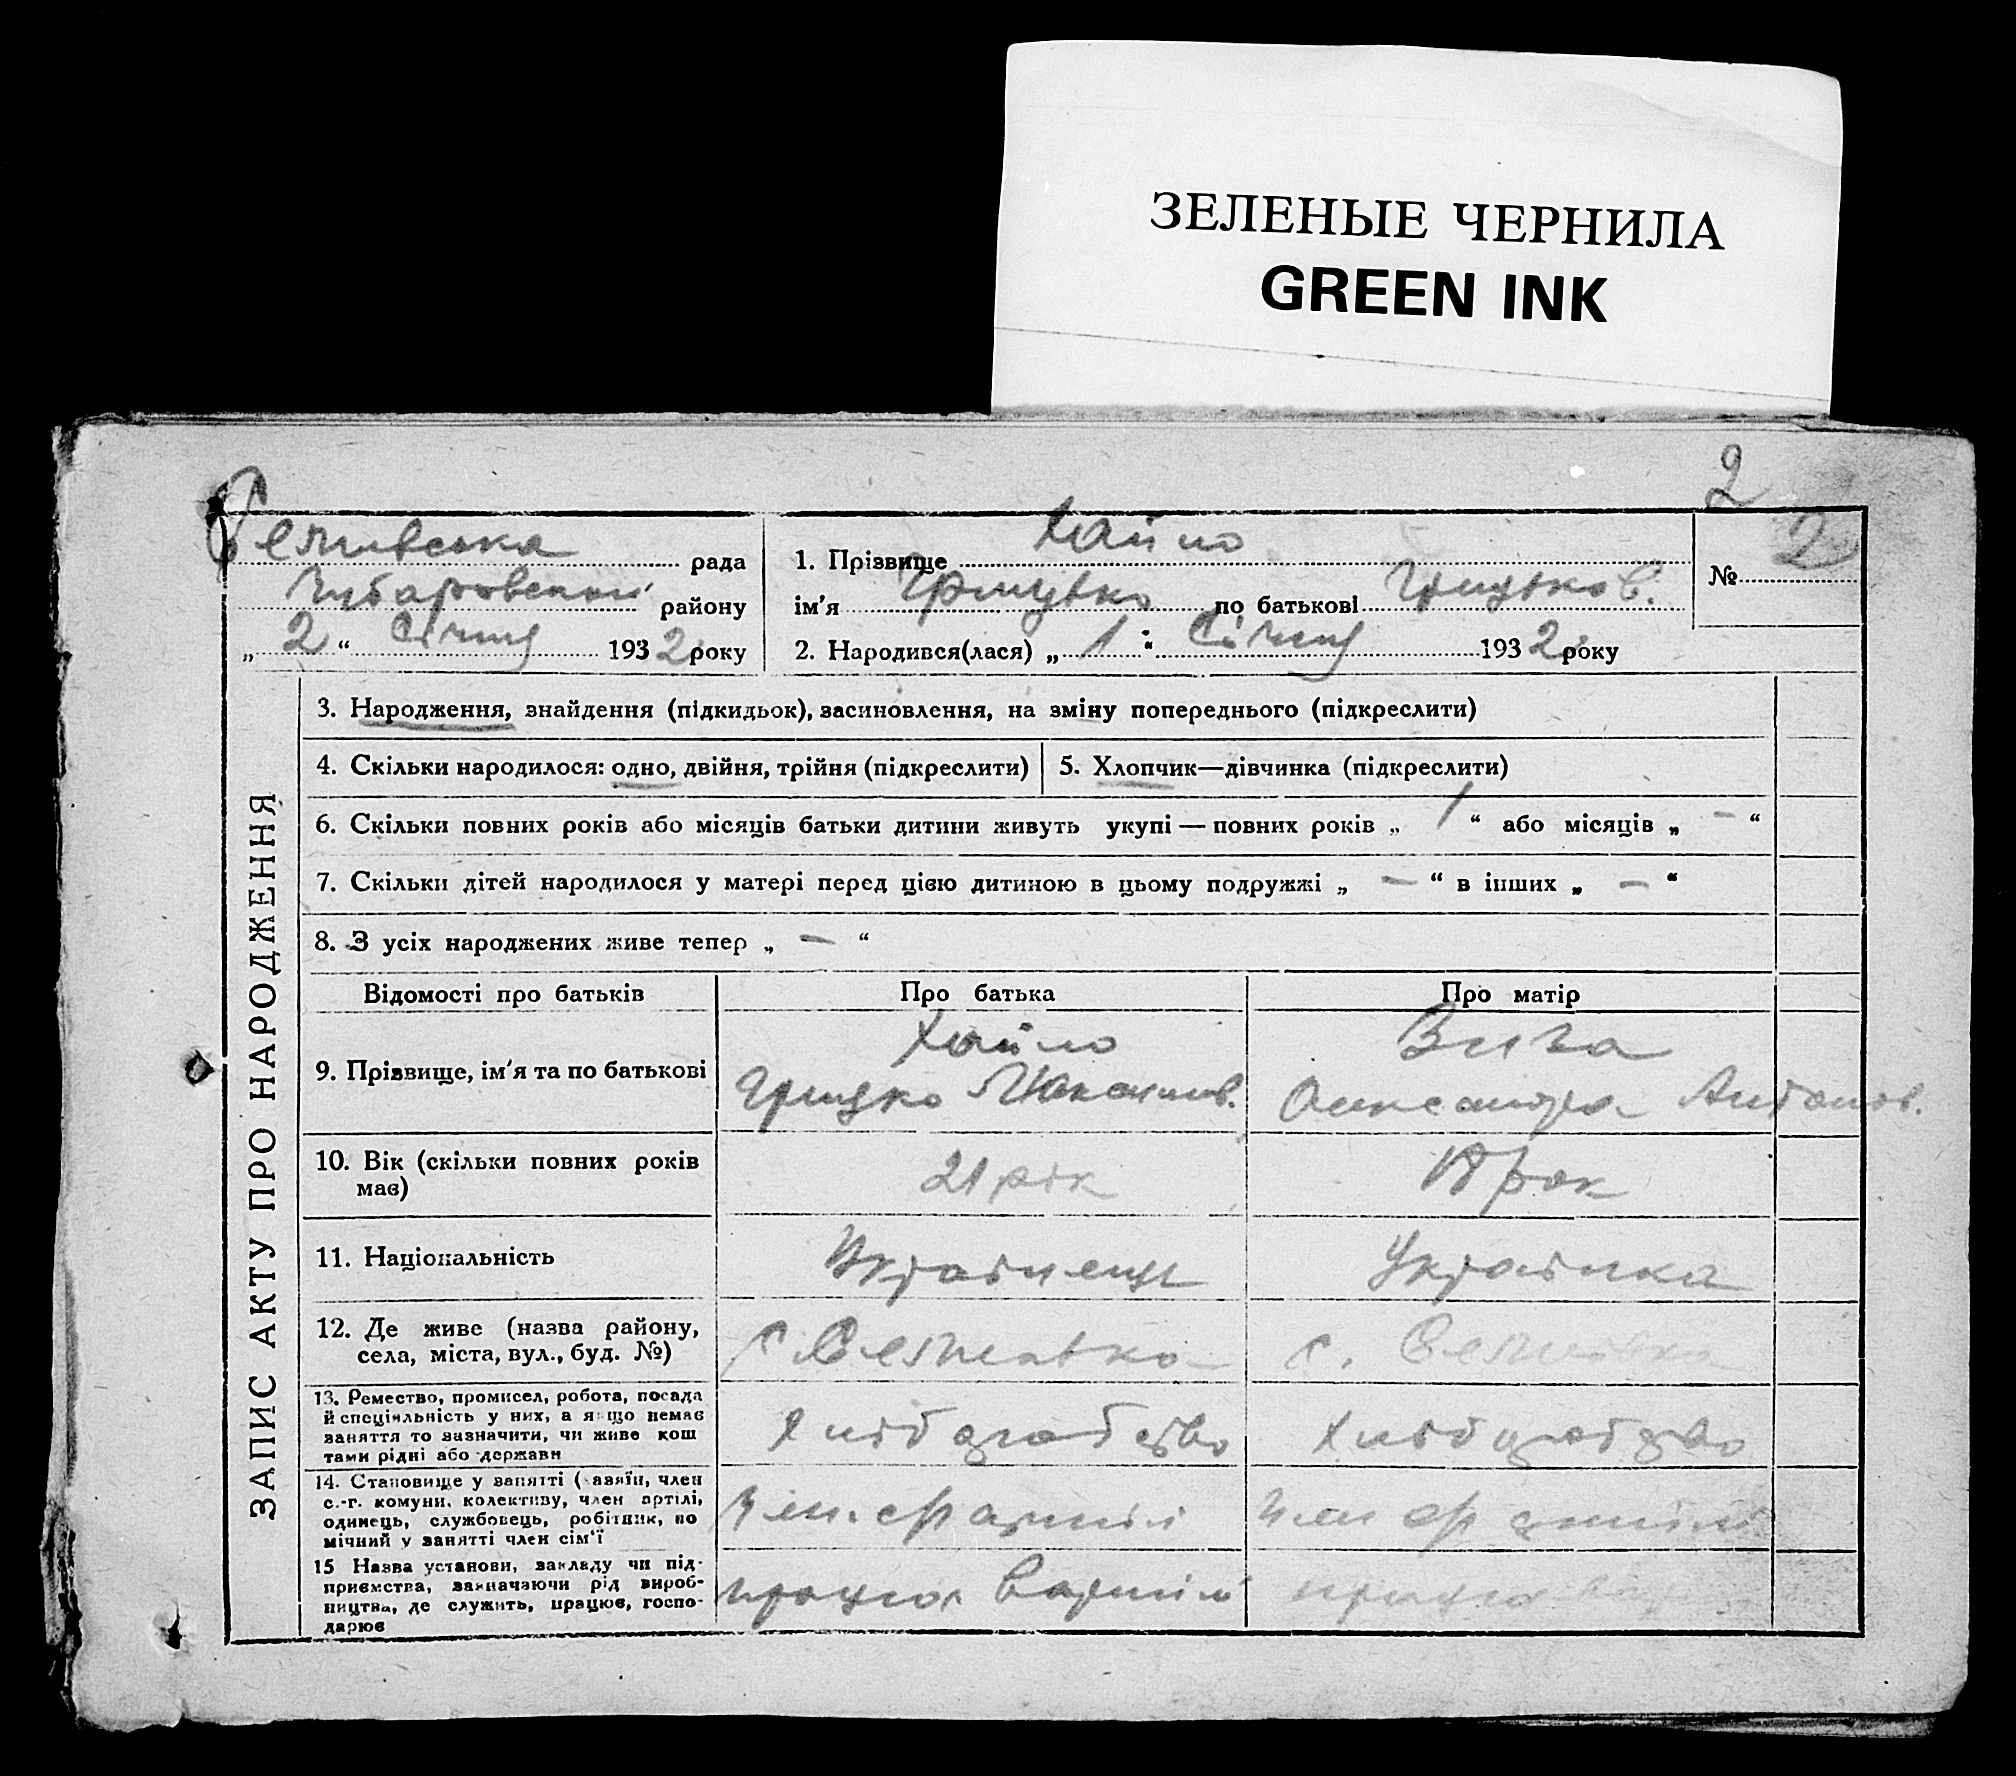 ЗЕЛЕНЫЕ ЧЕРНИЛА
GREEN INK
2
рада
району
„ 2 “ Січня 1932 року
1. Прізвище Хайло
ім'я Грицько по батькові Грицьков.
2. Народився(лася) „ 1 “ Січня 1932 року
№ 2
ЗАПИС АКТУ ПРО НАРОДЖЕННЯ
3. Народження, знайдення (підкидьок), засиновлення, на зміну попереднього (підкреслити)
4. Скільки народилося: одно, двійня, трійня (підкреслити)
5. Хлопчик—дівчинка (підкреслити)
6. Скільки повних років або місяців батьки дитини живуть укупі — повних років „ 1 “ або місяців „ — “
7. Скільки дітей народилося у матері перед цією дитиною в цьому подружжі „ — “ в інших „ — “
8. З усіх народжених живе тепер „ — “
Відомості про батьків
Про батька
Про матір
9. Прізвище, ім'я та по батькові
Хайло
Грицко Максимов.
Олександра Антонов.
10. Вік (скільки повних років
має)
21 рік
рок
11. Національність
Українець
Українка
12. Де живе (назва району,
села, міста, вул., буд. №)
с.
с.
13. Ремество, промисел, робота, посада
й спеціяльність у них, а якщо немає
заняття то зазначити, чи живе кош
тами рідні або держави
Хлібороб
Хлібороб
14. Становище у занятті (хазяїн, член
с.-г. комуни, колективу, член артілі,
одинець, службовець, робітник, по
мічний у занятті член сім'ї
Член артілі
Член артілі
15 Назва установи, закладу чи під-
приємства, зазначаючи рід вироб-
ництва, де служить, працює, госпо-
дарює
працює в артілі
працює